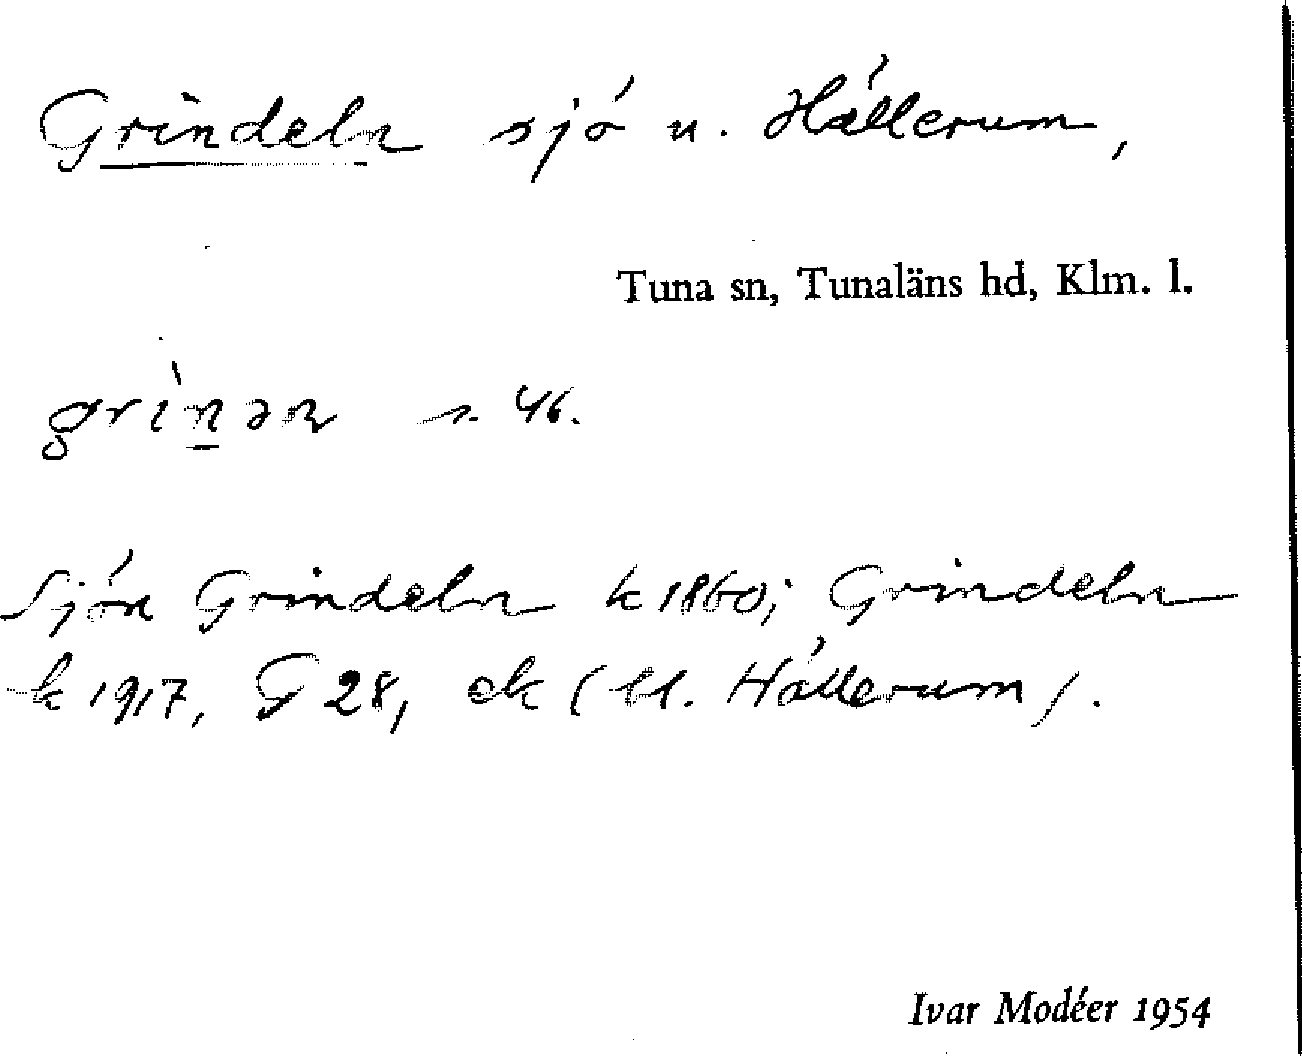 Grindeln sjö u. Hällerum,
Tuna sn, Tunaläns hd, Klm. l.
grìn̲ən s. 46.
Sjön Grindeln k 1860; Grindeln
k 1917, G 28, ek (Ll. Hällerum).
Ivar Modéer 1954